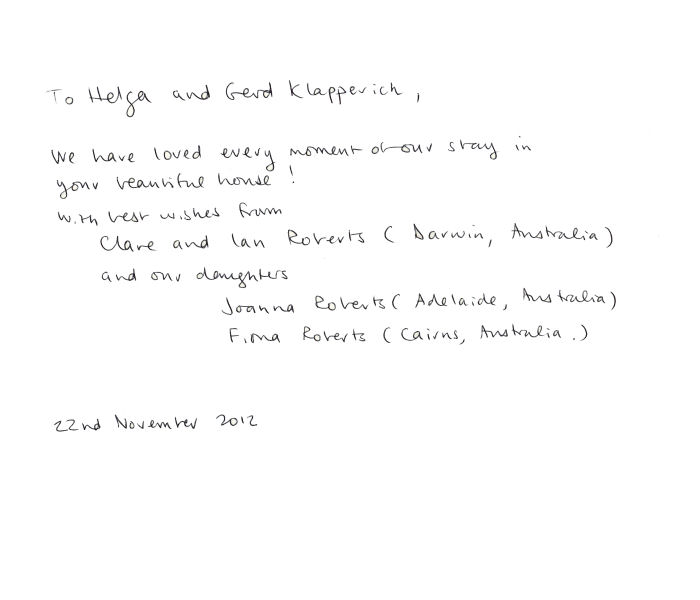 To Helga and Gerd Klapperich,
We have loved every moment of our stay in
your beautiful house!
With best wishes from
Clare and Ian Roberts (Darwin, Australia)
and our daughters
Joanna Roberts (Adelaide, Australia)
Fiona Roberts (Cairns, Australia.)
22nd November 2012